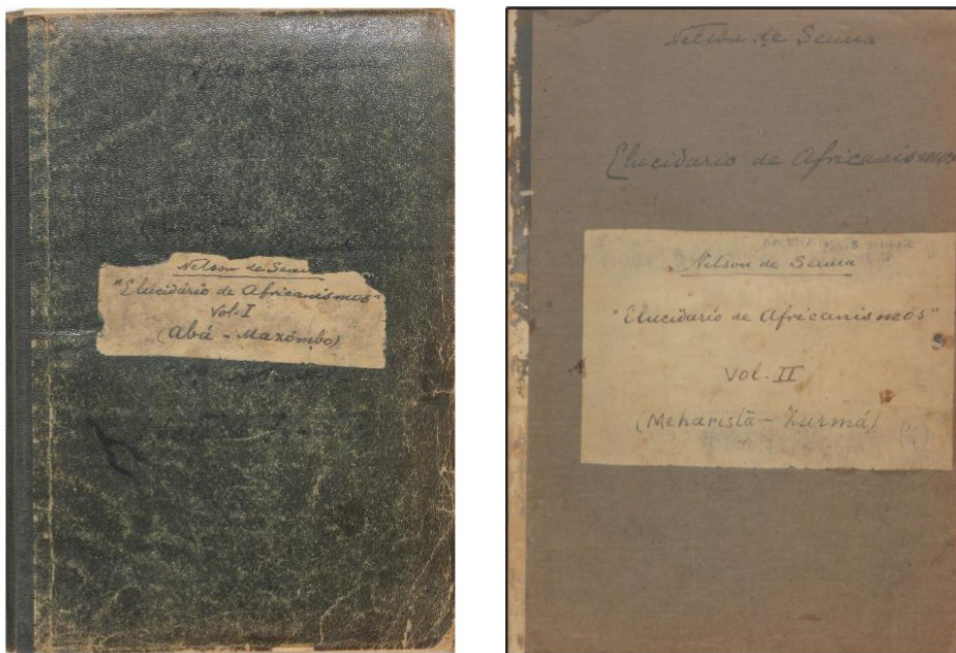 Nelson de Senna
"Elucidário de Africanismos"
Vol. I
(Abá - Mazómbo)
Nelson de Senna
Elucidario de Africanismos
Nelson de Senna
"Elucidario de Africanismos"
Vol. II
(Meharista - Zurmá)